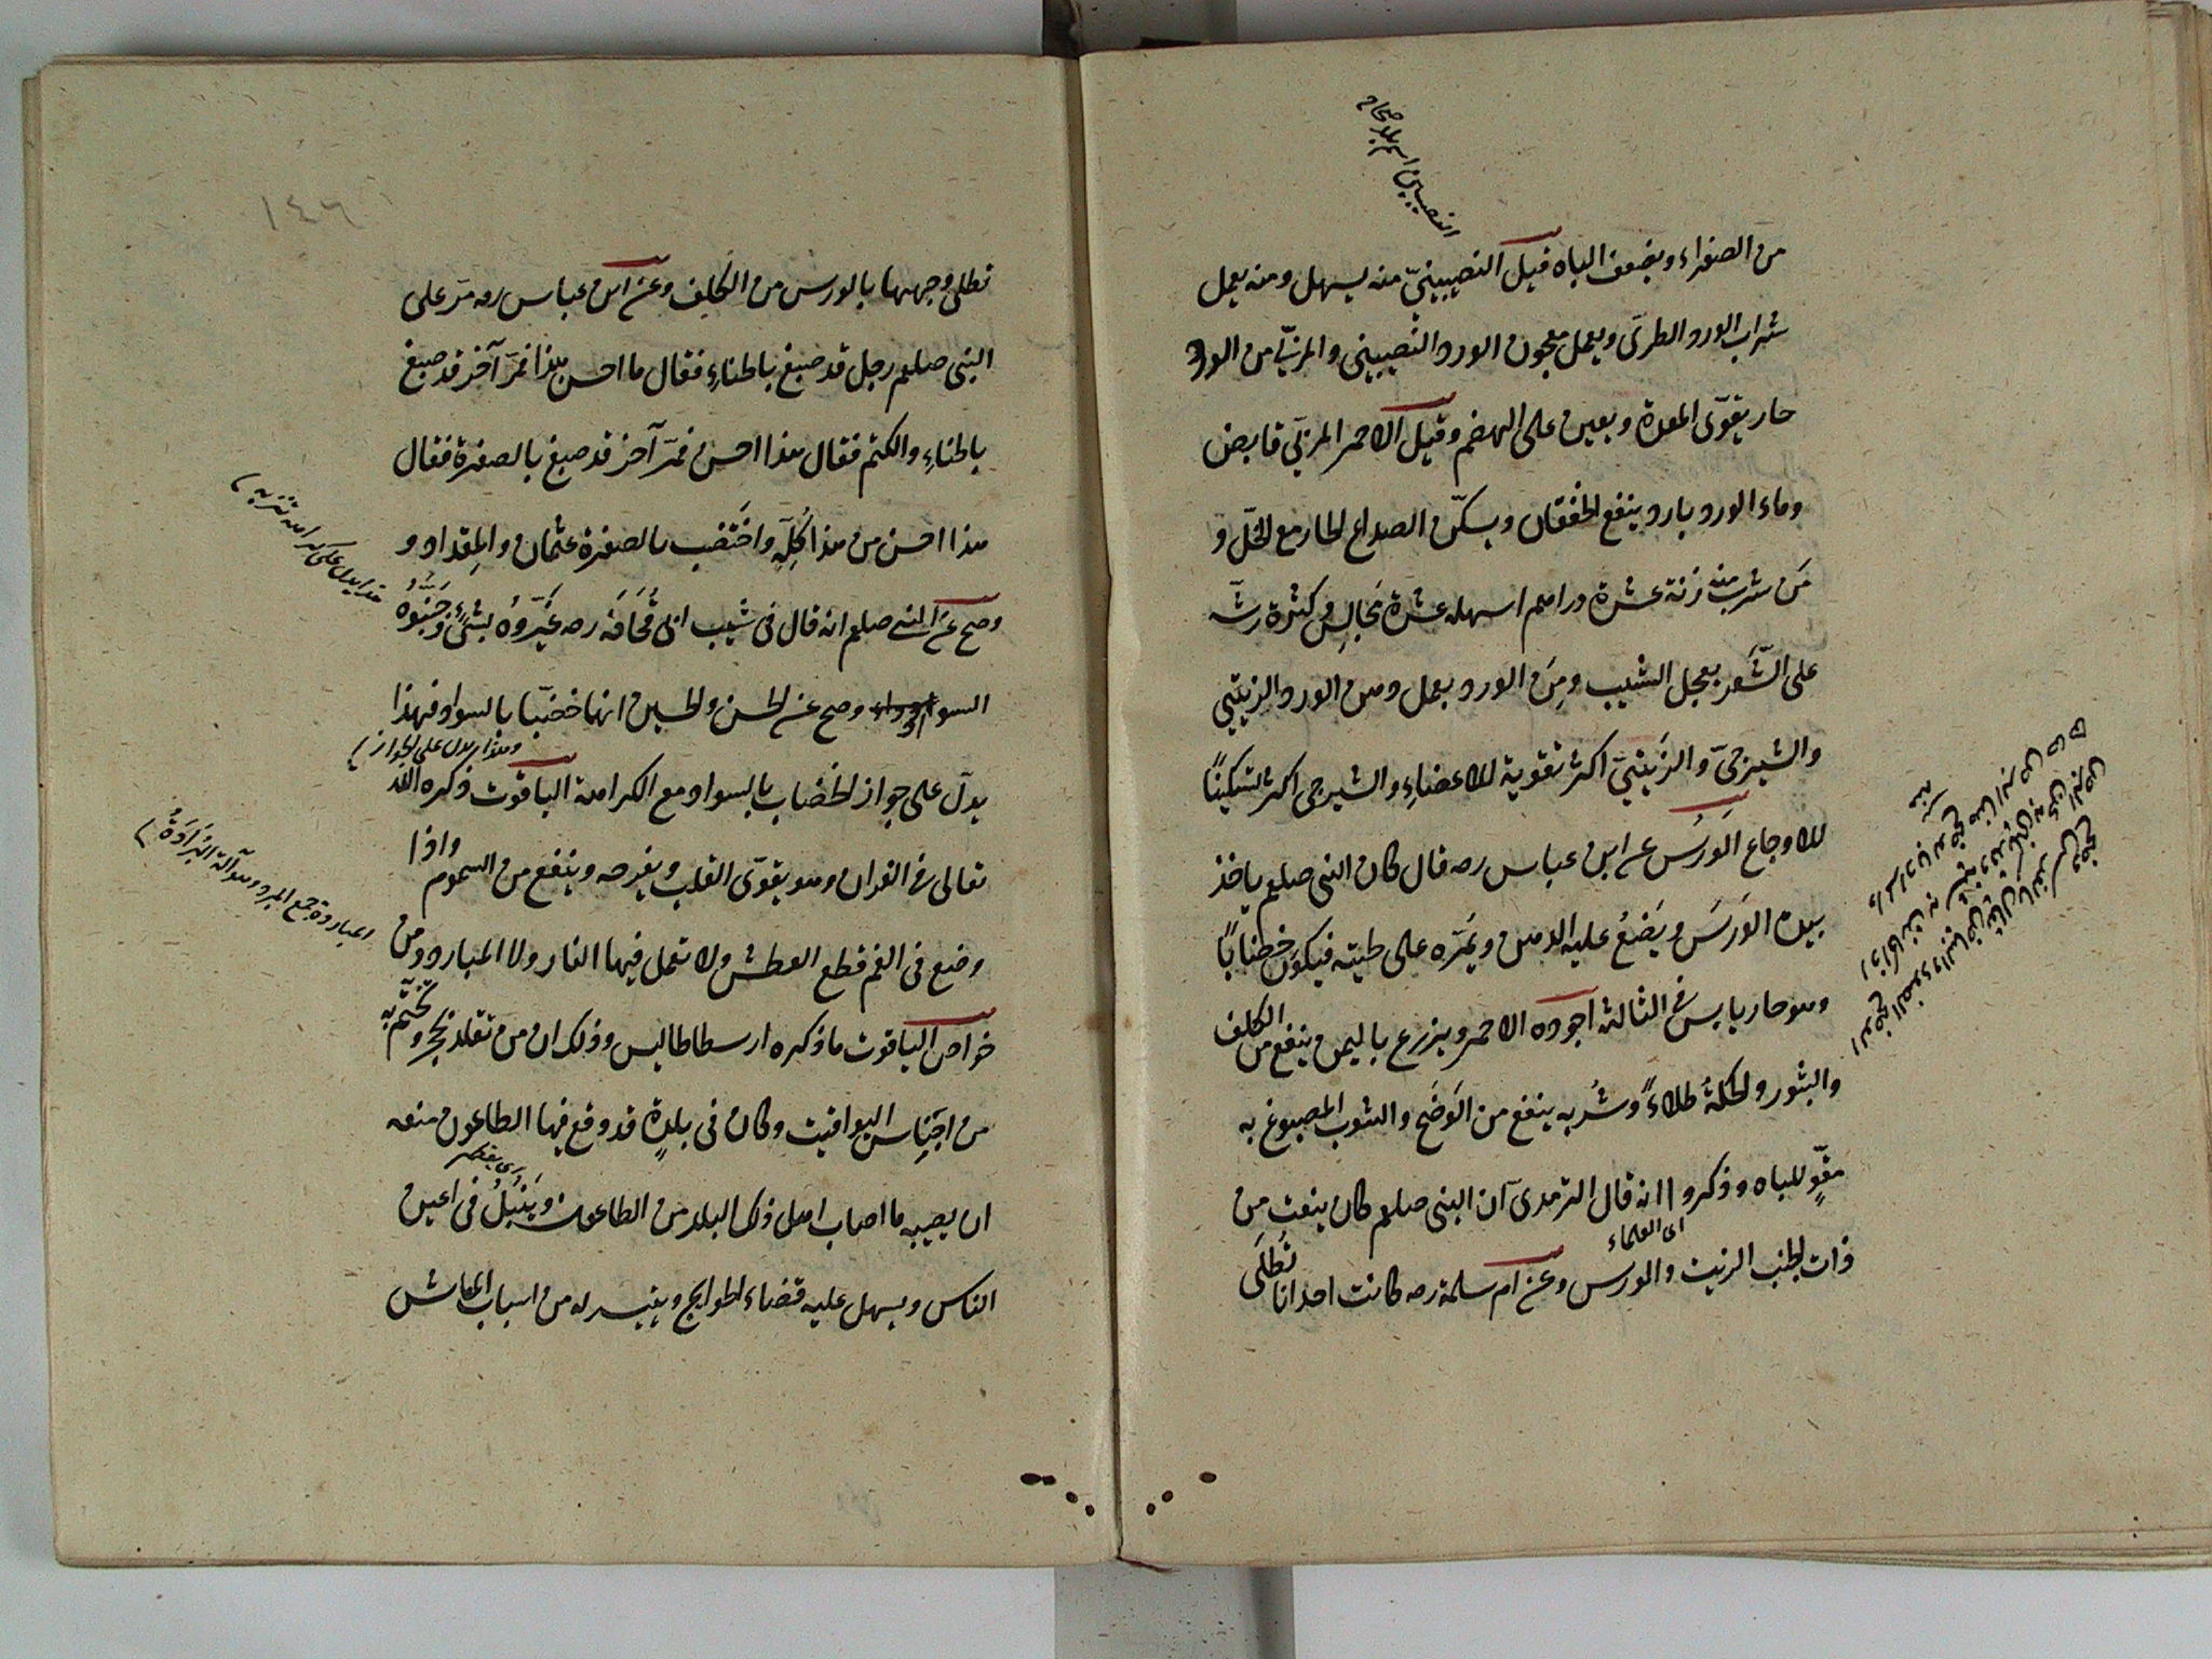 النصيبين اسم بلد صحاح
من الصفراء ويضعف الباه قيل النصيبينيّ منه يسهل ومنه يعمل
شراب الورد الطرى ويعمل معجون الورد النصيبينى والمربّى من الورد
حار يقوّى المعدة ويعين على الهضم وقيل الاحمر المربّى قابض
وماء الورد بارد ينفع الخفقان ويسكّن الصداع الحار مع الخلّ و
من شرب منه زنة عشرة دراهم اسهله عشرة مَجالِس وكثرة رشّه
على الشَّعر يعجل الشيب ومن الورد يعمل دهن الورد الزيتيّ
والشيرجىّ والزَيتيّ اكثر تقوية للاعضاءِ والشيرجى اكثر تسكينًا
للاوجاع الوَرَسَ عن ابن عباس رضه قال كان النبى صلعم ياخذ
بيده الوَرَسَ ويَضَعُ عليه الدهن ويَمَرّه على لحيته فيكون خضابًا
وهو حار يابس فى الثالثة اجوده الاحمر ويزرع باليمن ينفع من الكلف
والبثور والحكة طلاءً وشُربه ينفع من الوَضَح والثوب المصبوغ به
مقوٍّ للباه وذكروا انه قال الترمدىّ ان النبى صلعم كان ينعت من
اى العلماء
ذات الجنب الزيت والورس وعن ام سلمة رضه كانت احدانا تُطلَى
١٤٦
تطلى وجهها بالورس من الكَلِف وعن ابن عباس رضه مرّ على
النبى صلعم رجل قد صبغ بالحناءِ فقال ما احسن هذا فمرّ آخر قد صبغ
بالحناءِ والكتم فقال هذا احسن فمرّ آخر قد صبغ بالصفرة فقال
هذا احسن من هذا كُلِّه واخَتضب بالصفرة عثمان والمِقداد و
هذا يدل على كراهة تنزيه
وصح عن النبى صلعم انه قال فى شيب ابى قُحَافَه رضه غَيِّروُه بشئٍ وجَنِّبُوهُ
السواد وصح عن الحسن والحسين انهما خضبَا بالسواد فهذا
وهذا يدل على الجواز
يدلّ على جواز الخضاب بالسواد مع الكراهة الياقوت ذكره الله
تعالى فى القران وهو يقوّى القلب ويفرحه وينفع من السموم واذا
وضع فى الفم قطع العطش ولا تعمل فيها النار ولا المبارد ومن
المبارد جمع المبرد وهو آلة البَرَادَةُ
خواص الياقوت ما ذكره ارسطاطاليس وذلك ان من تقلد بحجر وتختّم به
من اجَناِس اليواقيت وكان فى بلدةٍ قد وقع فيها الطاعون منعه
ان يصيبه ما اصاب اهل ذلك البلد من الطاعون ويَنبُلُ فى اعين
الناس ويسهل عليه قضاء الحوايج ويتيسر له من اسباب المعاش